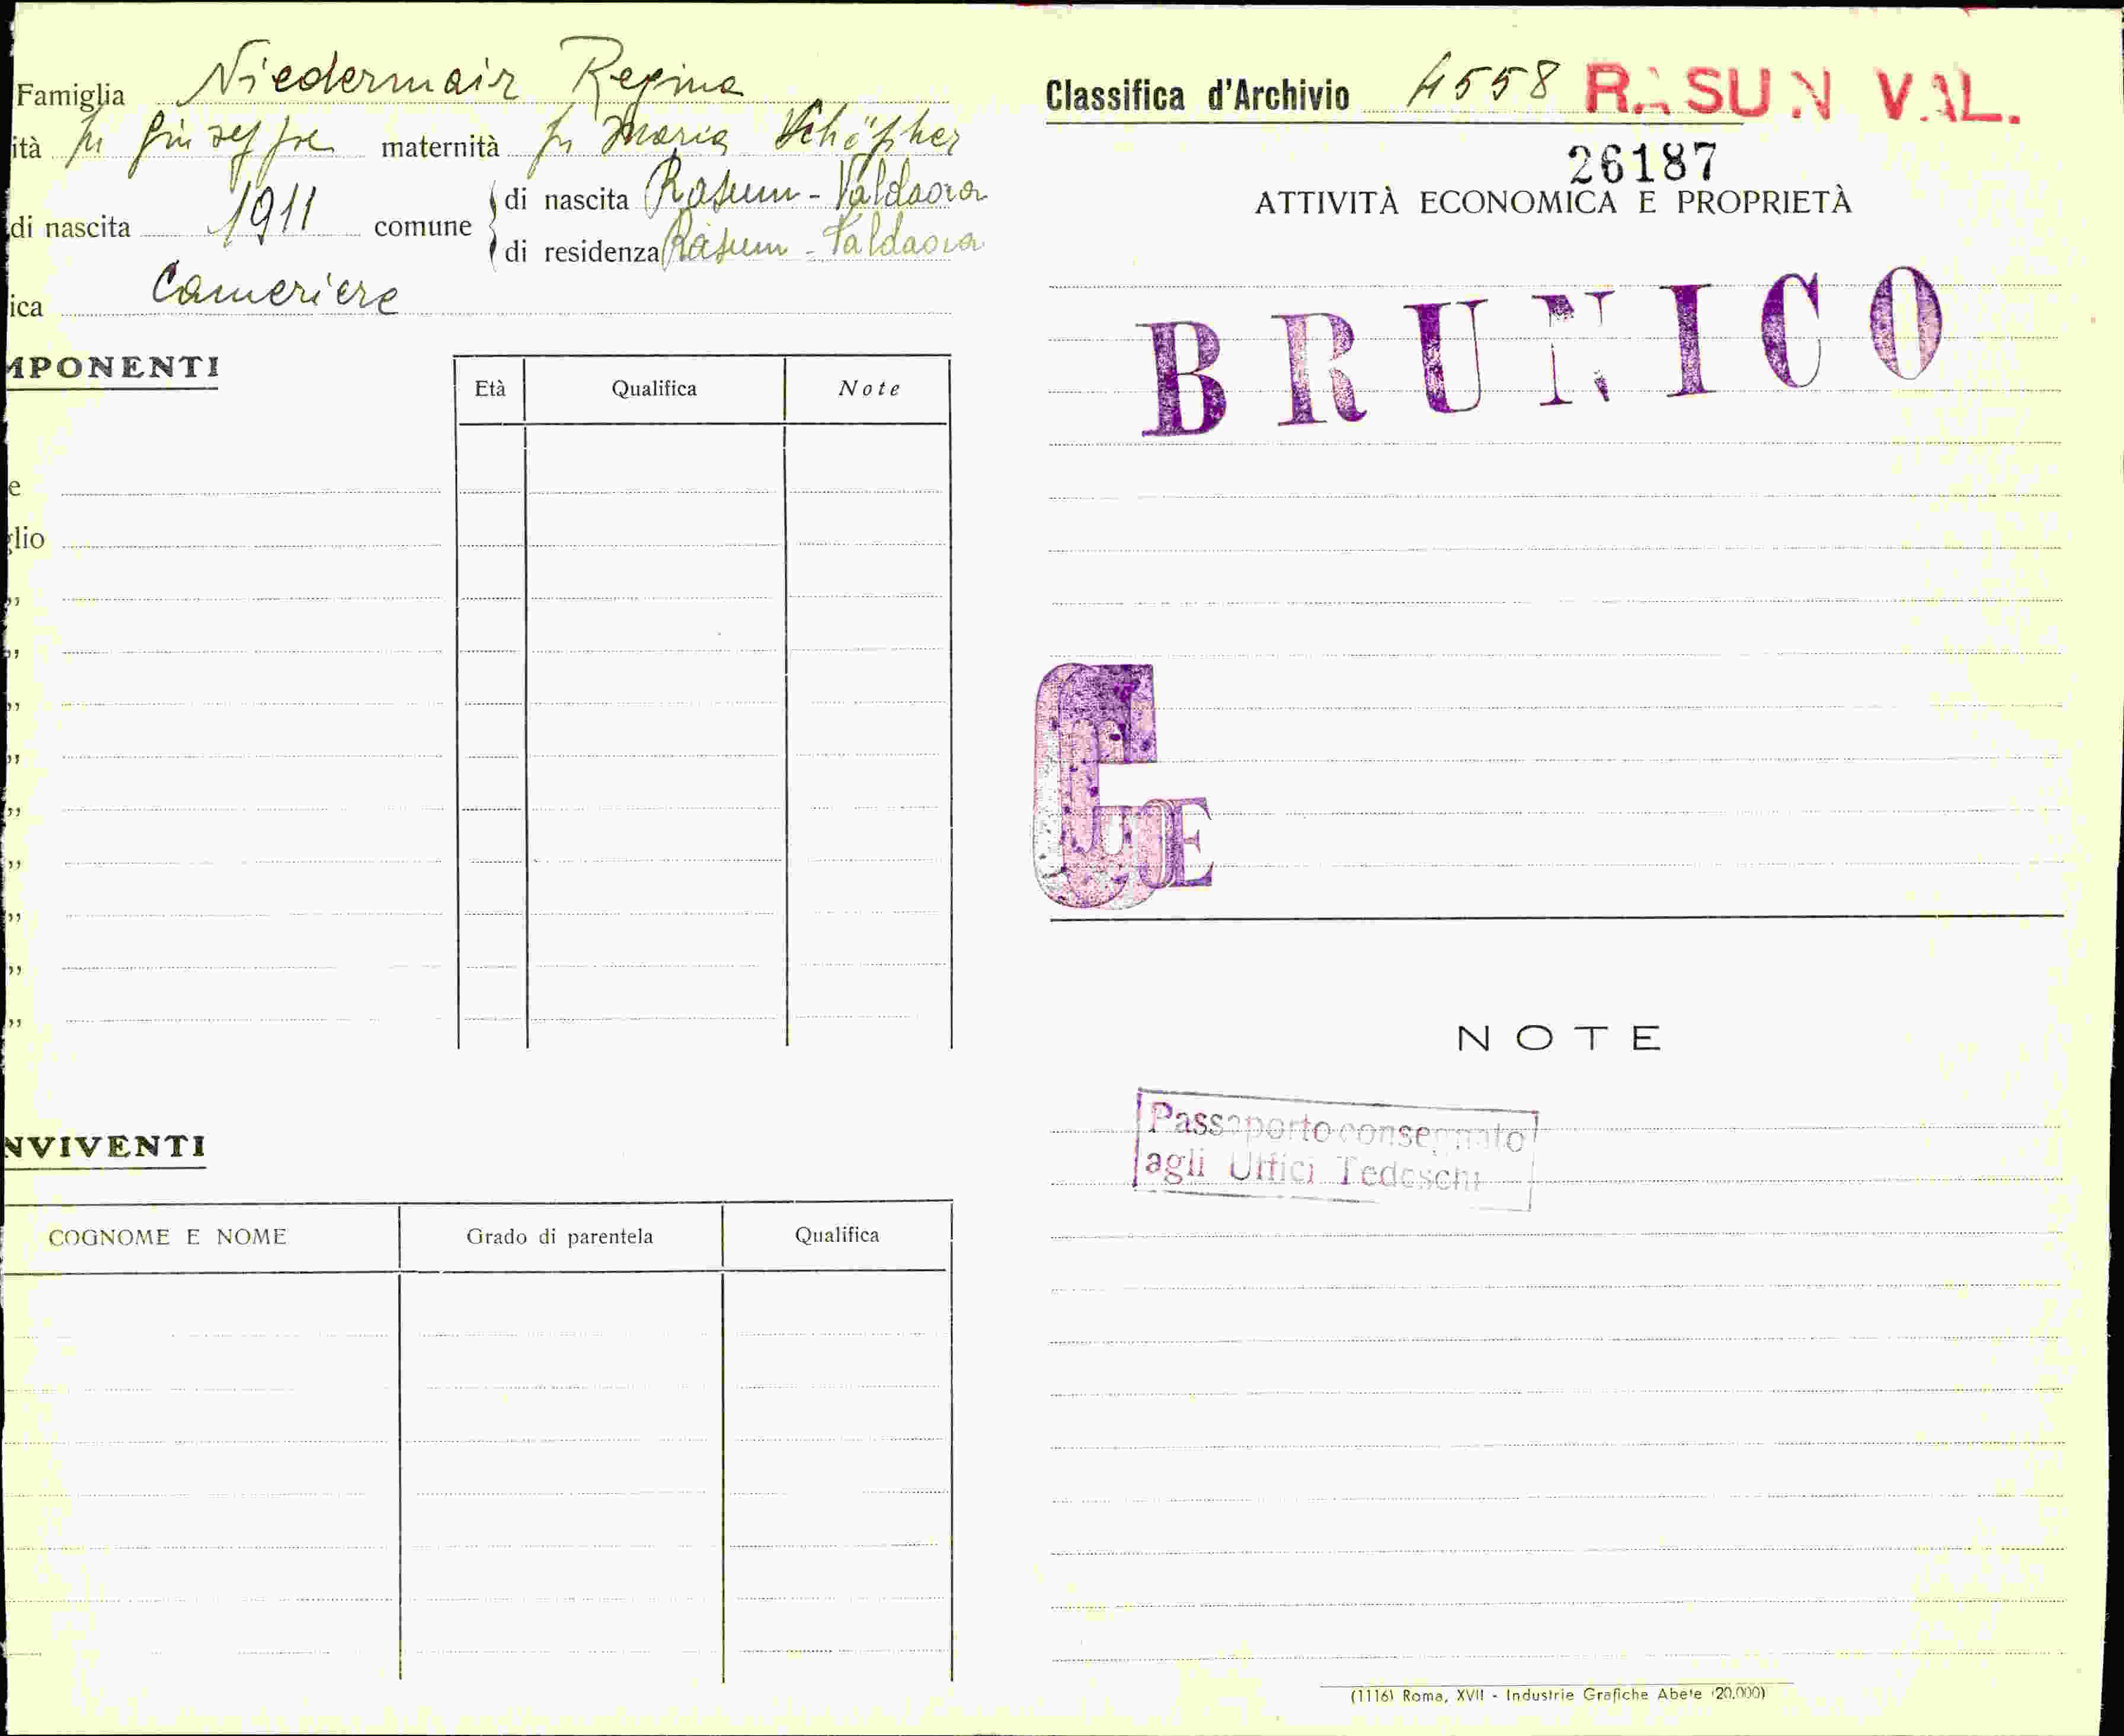 Famiglia Niedermair Regina
ità fu Giuseppe maternità fu Maria Schöpfer
di nascita 1911 comune di nascita Rasun - Valdaora
di residenza Rasun - Valdaora
ica Cameriere
MPONENTI
Età Qualifica Note
e
glio
„
„
„
„
„
„
„
„
„
NVIVENTI
COGNOME E NOME Grado di parentela Qualifica
Classifica d'Archivio 4558 RASUN VAL.
26187
ATTIVITÀ ECONOMICA E PROPRIETÀ
BRUNICO
NOTE
Passaporto consegnato
agli Uffici Tedeschi
(1116) Roma, XVII - Industrie Grafiche Abete (20.000)